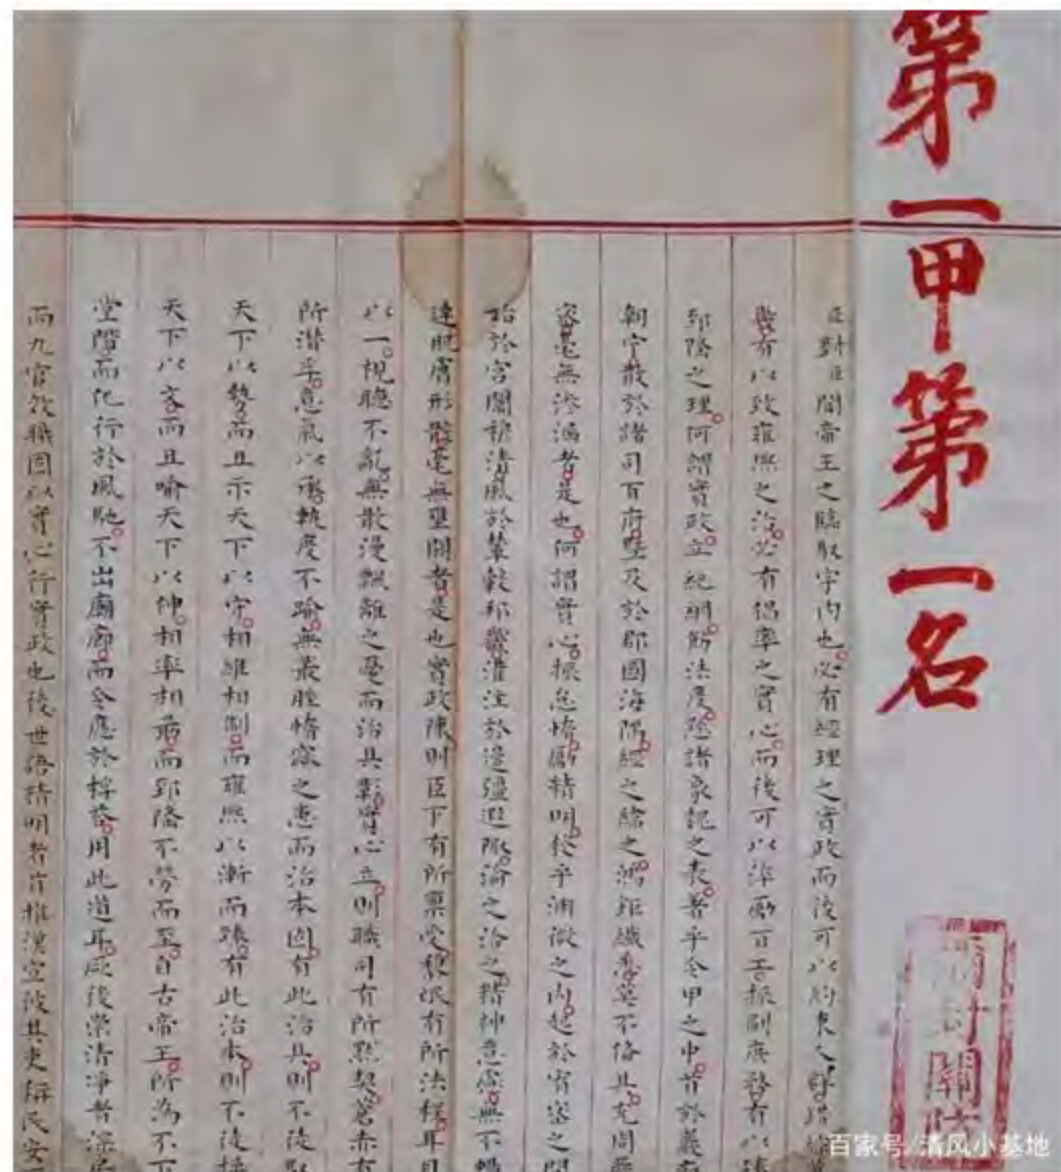 第一甲第一名
臣對臣聞帝王之臨馭宇內也必有經理之實政而後可以約束人群
幾有以致雍熙之治必有倡率之實心而後可以淬勵百工振刷庶務有以
郅隆之理何謂實政立紀綱飭法度懸諸象魏之表著乎令甲之中首於
朝宁散於諸司百府暨及於郡國海隅經之緯之鴻鉅纖悉莫不備具充周
密毫無滲漏者是也何謂實心振怠惰勵精明發乎淵微之內起於宵密之
始於宮闈穆清風於輦轂邦畿灌注於邊疆遐陬淪之洽之精神意慮無不
達肌膚形骸毫無壅閼者是也實政陳則臣下有所稟受黎氓有所法程耳目
以一視聽不亂無散漫飄離之憂而治具彰實心立則職司有所默契蒼赤有
所潛孚意氣以承軌度不踰無叢脞惰窳之患而治本固有此治具則不徒
天下以勢而且示天下以守相維相制而雍熙以漸而臻有此治本則不徒
天下以文而且喻天下以神相率相勗而郅隆不勞而至自古帝王所為不下
堂階而化行於風馳不出廟廊而令應於桴答用此道耳厥後崇清淨者深居
而九官效職固以實心行實政也後世語精明者首推漢宣彼其吏稱民安
開封關防
百家号/清风小基地